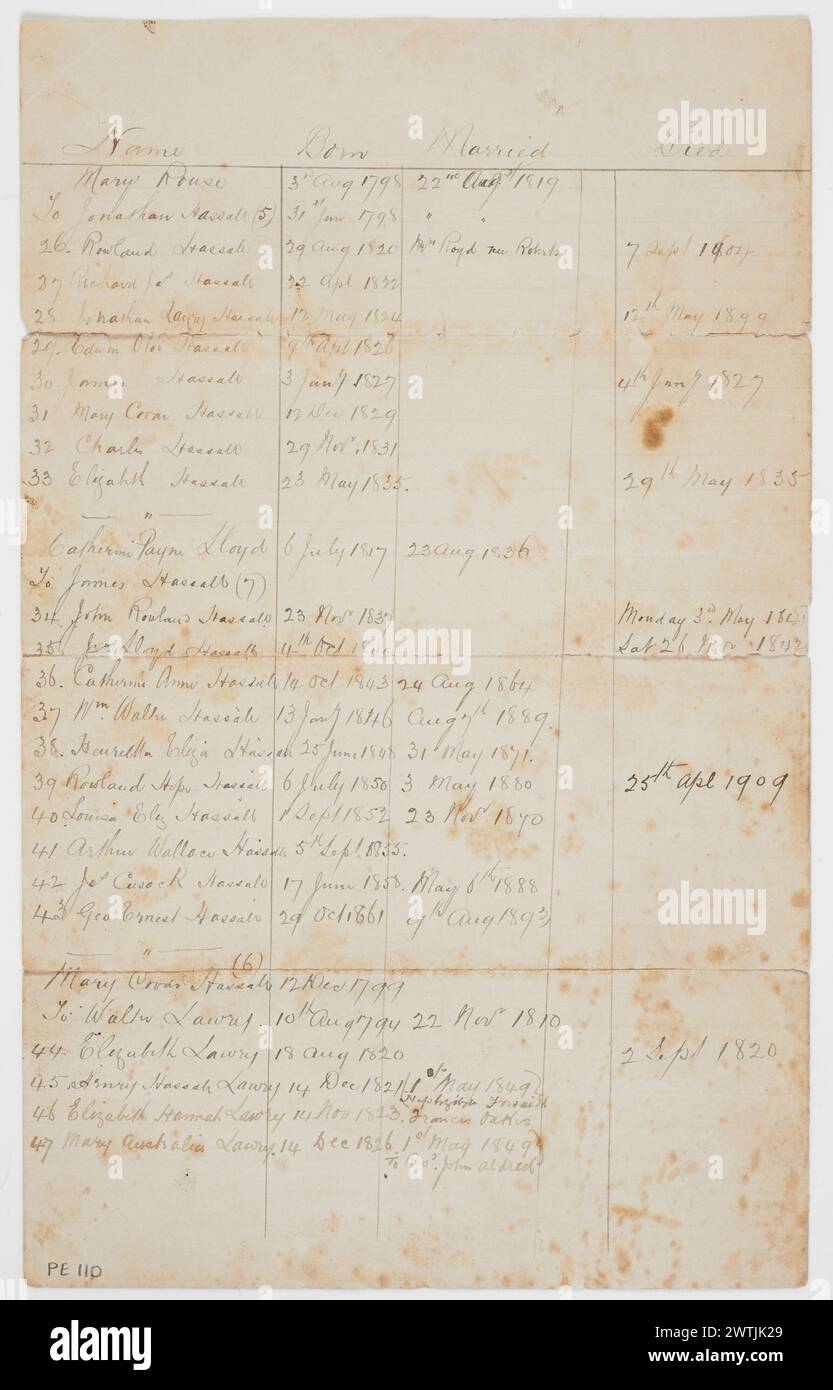 Name Born Married Died
Mary Rouse 3rd Aug 1798 22nd Aug 1819
To Jonathan Hassall (5) 31st Jany 1798 " "
26. Rowland Hassall 29 Aug 1820 Mrs Royd nee Roberts 7 Sept 1904
27 Richard Js Hassall 22 Apl 1822
28 Jonathan Lawry Hassall 12 May 1824 12th May 1899
29. Edwin Hassall 9th Apl 1826
30 James Hassall 3 Jany 1827 4th Jany 1827
31 Mary Cover Hassall 12 Dec 1829
32 Charles Hassall 29 Novr 1831
33 Elizabeth Hassall 23 May 1835. 29th May 1835
"
Catherine Payne Lloyd 6 July 1817 23 Aug 1836
To James Hassall (7)
34 John Rowland Hassall 23 Novr Monday 3rd May
35. Lloyd Hassall 4th Oct Sat 26 Novr 1842
36. Catherine Anne Hassall 14 Oct 1843 24 Aug 1864
37 Wm Walter Hassall 13 Jany 1846 Aug 7th 1889.
38. Henrietta Eliza Hassall 25 June 1848 31 May 1871.
39 Rowland Hope Hassall 6 July 1850 3 May 1880 25th Apl 1909
40 Louisa Eliz Hassall 1 Sept 1852 23 Novr 1870
41 Arthur Wallace Hassall 5th Sept 1855.
42 Js Cusack Hassall 17 June 1858. May 6th 1888
43 Geo Ernest Hassall 29 Oct 1861 9th Aug 1893
"
Mary Cover Hassall (6) 12 Dec 1799
To Walter Lawry. 10th Aug 1794 22 Novr 1810
44 Elizabeth Lawry 18 Aug 1820 2 Sept 1820
45 Henry Hassall Lawry 14 Dec 1821 1st May 1849
46 Elizabeth Hannah Lawry 14 Nov 1823. Francis Oakes
47 Mary Australia Lawry. 14 Dec 1826. 1st May 1849
To John Aldred
PE 110
alamy
Image ID: 2WTJK29
www.alamy.com